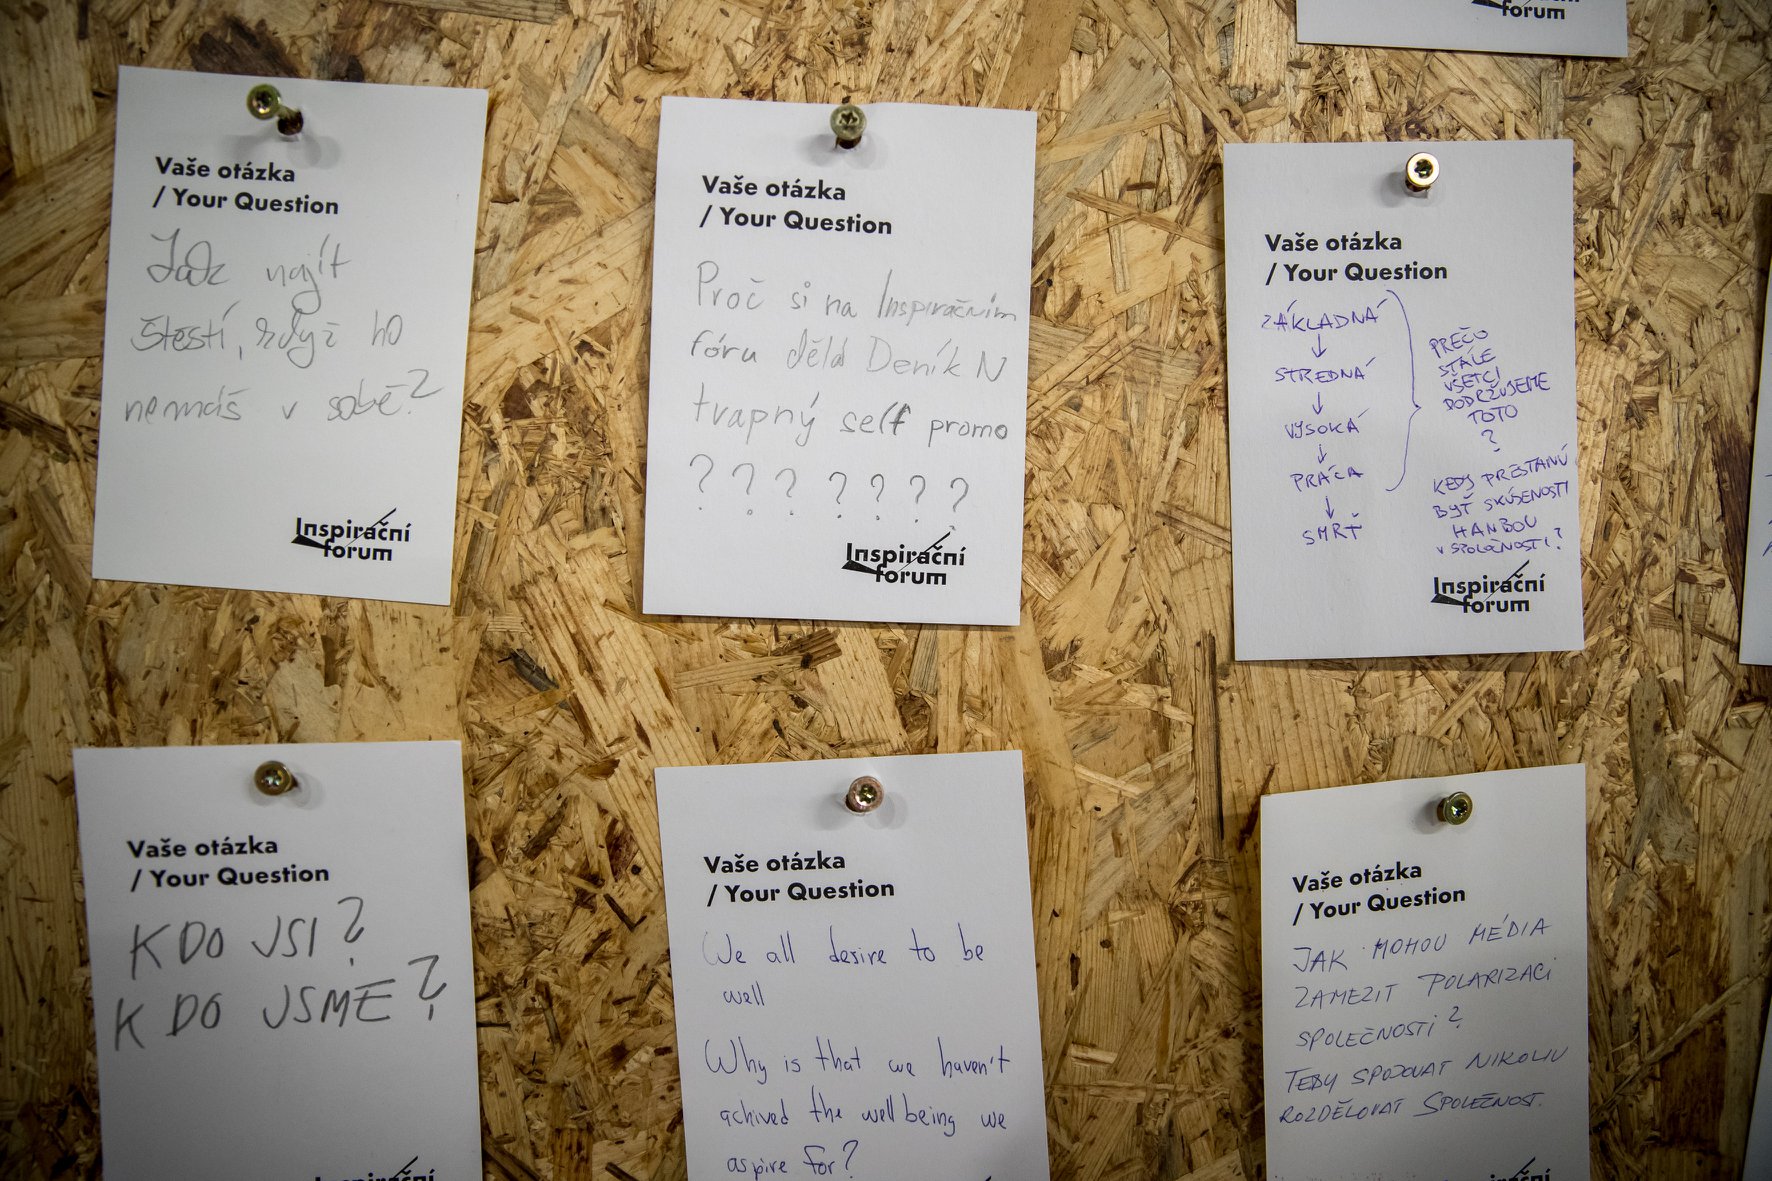 forum
Vaše otázka
/ Your Question
Jak najít
štestí, když ho
nemáš v sobě?
Inspirační
forum
Vaše otázka
/ Your Question
Proč si na Inspiračním
fóru dělá Deník N
trapný self promo
? ? ? ? ? ? ?
Inspirační
forum
Vaše otázka
/ Your Question
ZÁKLADNÁ
↓
STREDNÁ
↓
VYSOKÁ
↓
PRÁCA
↓
SMRŤ
PREČO
STÁLE
VŠETCI
PODRŽUJEME
TOTO
?
KEDY PRESTANÚ
BYŤ SKÚSENOSTI
HANBOU
V SPOLOČNOSTI?
Inspirační
forum
Vaše otázka
/ Your Question
KDO JSI?
KDO JSME?
Inspirační
Vaše otázka
/ Your Question
We all desire to be
well
Why is that we haven't
achived the wellbeing we
aspire for?
Vaše otázka
/ Your Question
JAK MOHOU MÉDIA
ZAMEZIT POLARIZACI
SPOLEČNOSTI?
TEDY SPOJOVAT NIKOLIV
ROZDĚLOVAT SPOLEČNOST.
Inspirační